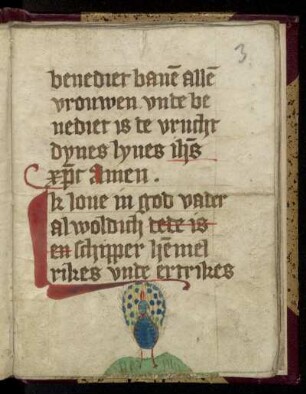 3
benediet bauē allē
vrouwen vnte be
nediet is te vrucht
dynes lyues ihs̄
xp̄c amen.
Ik loue in god vater
al woldich tete is
en schipper hēmel
rikes vnte ertrikes